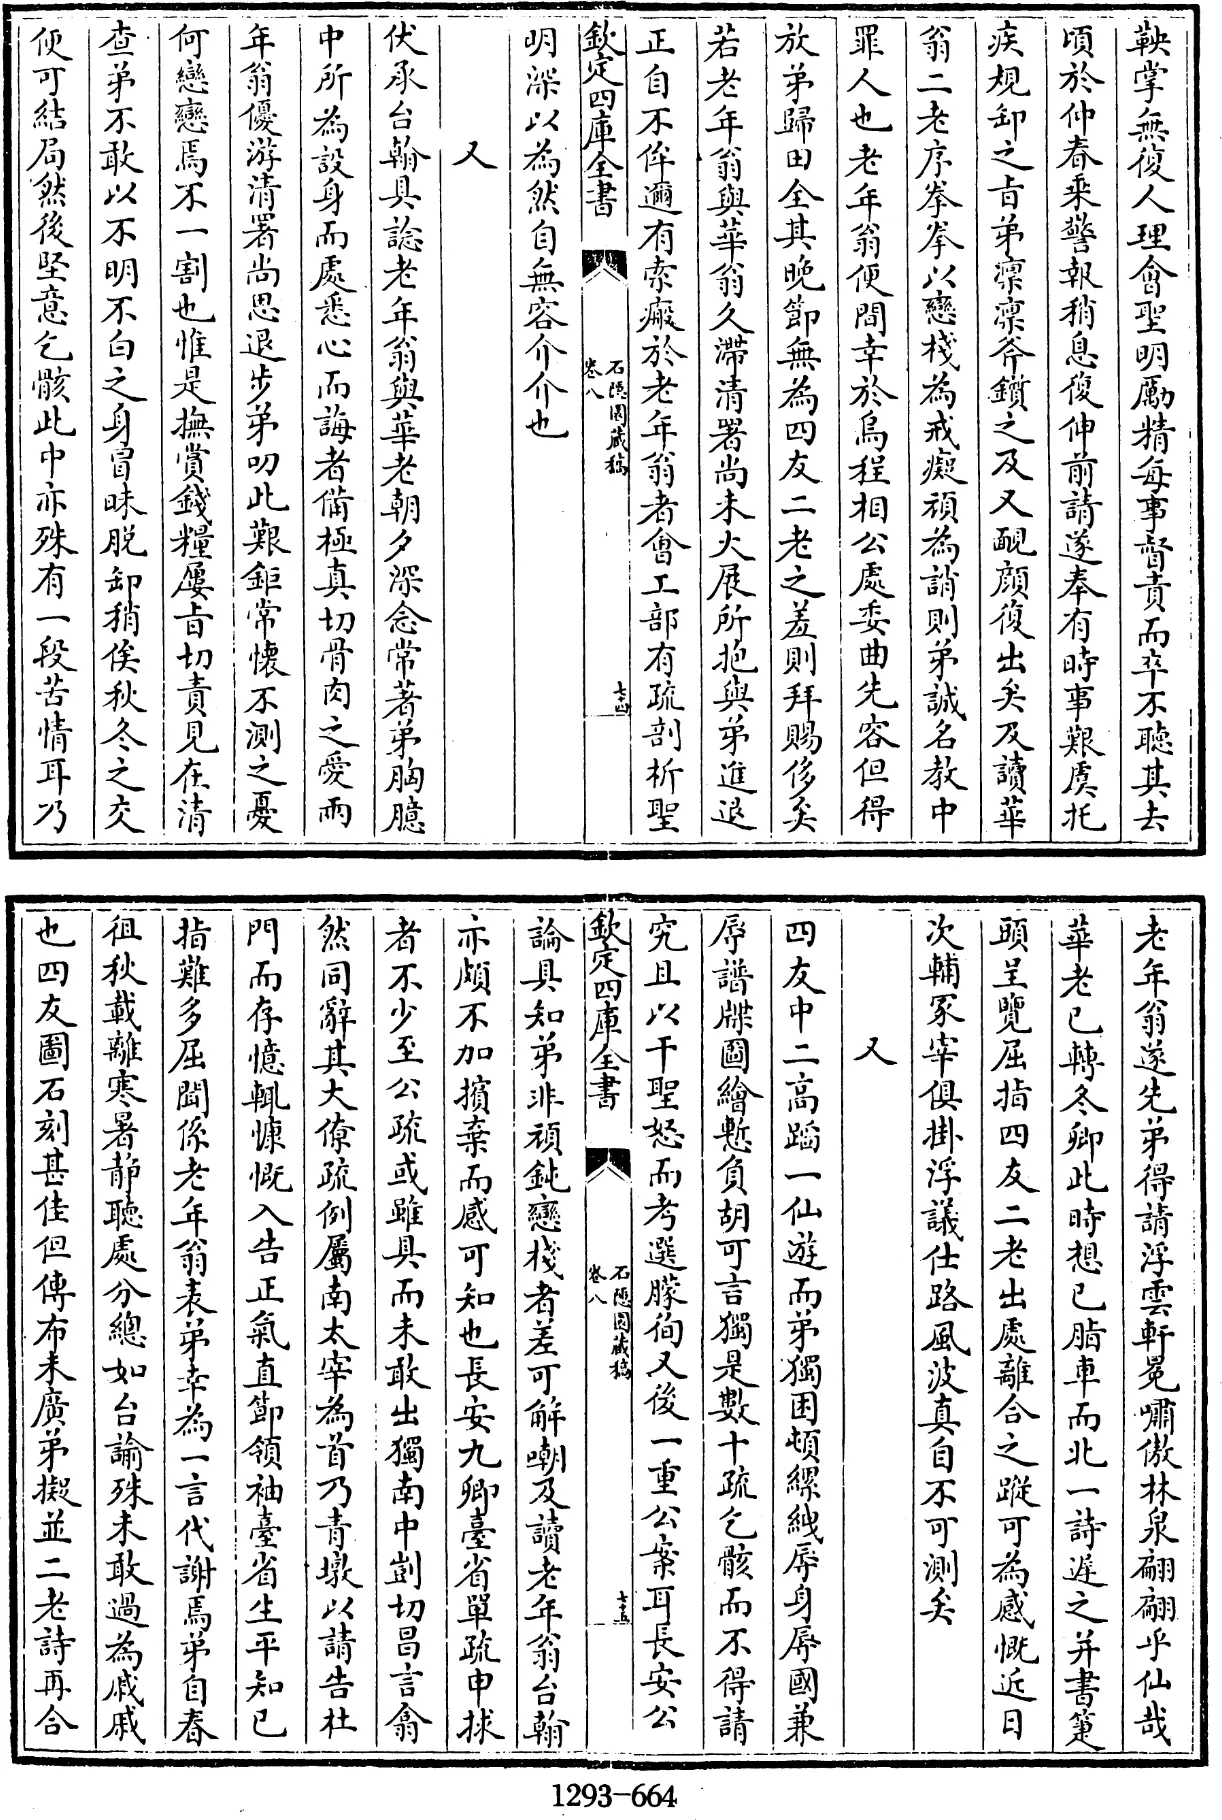 鞅掌無復人理會聖明勵精每事督責而卒不聽其去
頃於仲春乘警報稍息復伸前請遂奉有時事艱虞托
疾規卸之㫖弟凛凛斧鑕之及又靦顔復出矣及讀華
翁二老序拳拳以戀棧為戒癡頑為誚則弟誠名教中
罪人也老年翁便間幸於烏程相公處委曲先容但得
放弟歸田全其晚節無為四友二老之羞則拜賜侈矣
若老年翁與華翁久滯清署尚未大展所抱與弟進退
正自不侔邇有索瘢於老年翁者會工部有疏剖析聖
欽定四庫全書
石隱園藏稿
卷八
七十四
明深以為然自無容介介也
又
伏承台翰具諗老年翁與華老朝夕深念常著弟胸臆
中所為設身而處悉心而誨者備極真切骨肉之愛兩
年翁優游清署尚思退步弟叨此艱鉅常懷不測之憂
何戀戀焉不一割也惟是撫賞錢糧屢㫖切責見在清
查弟不敢以不明不白之身冒昧脱卸稍俟秋冬之交
便可結局然後堅意乞骸此中亦殊有一段苦情耳乃
老年翁遂先弟得請浮雲軒冕嘯傲林泉翩翩乎仙哉
華老已轉冬卿此時想已脂車而北一詩遲之并書箑
頭呈覽屈指四友二老出處離合之蹤可為感慨近日
次輔冢宰俱掛浮議仕路風波真自不可測矣
又
四友中二高蹈一仙遊而弟獨困頓縲絏辱身辱國兼
辱譜牒圖繪慙負胡可言獨是數十疏乞骸而不得請
究且以干聖怒而考選朦徇又後一重公案耳長安公
欽定四庫全書
石隱園藏稿
卷八
七十五
論具知弟非頑鈍戀棧者差可解嘲及讀老年翁台翰
亦頗不加擯棄而感可知也長安九卿臺省單疏申捄
者不少至公疏或雖具而未敢出獨南中剴切昌言翕
然同辭其大僚疏例屬南太宰為首乃青墩以請告杜
門而存憶輒慷慨入告正氣直節領袖臺省生平知己
指難多屈聞係老年翁表弟幸為一言代謝焉弟自春
徂秋載離寒暑靜聽處分總如台諭殊未敢過為戚戚
也四友圖石刻甚佳但傳布未廣弟擬並二老詩再合
1293-664